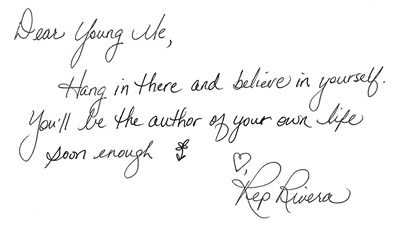 Dear Young Me,
Hang in there and believe in yourself.
You'll be the author of your own life
soon enough
Rep Rivera